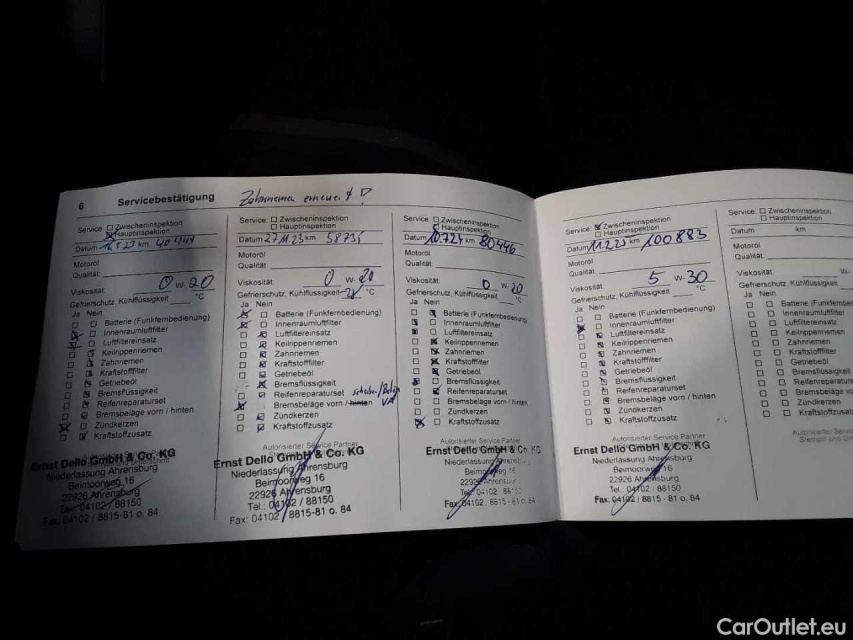 6 Servicebestätigung Zahnriemen erneuert!
Service: Zwischeninspektion
Hauptinspektion
Datum km
Motoröl
Qualität:
Viskosität: 0 W-20
Gefrierschutz, Kühlflüssigkeit °C
Ja Nein
Batterie (Funkfernbedienung)
Innenraumluftfilter
Luftfiltereinsatz
Keilrippenriemen
Zahnriemen
Kraftstofffilter
Getriebeöl
Bremsflüssigkeit
Reifenreparaturset
Bremsbeläge vorn / hinten
Zündkerzen
Kraftstoffzusatz
Ernst Dello GmbH & Co. KG
Niederlassung Ahrensburg
Beimoorweg 16
22926 Ahrensburg
Tel.: 04102 / 88150
Fax: 04102 / 8815-81 o. 84
Service: Zwischeninspektion
Hauptinspektion
Datum 27.11.23 km 58735
Motoröl
Qualität:
Viskosität: 0 W-20
Gefrierschutz, Kühlflüssigkeit °C
Ja Nein
Batterie (Funkfernbedienung)
Innenraumluftfilter
Luftfiltereinsatz
Keilrippenriemen
Zahnriemen
Kraftstofffilter
Getriebeöl
Bremsflüssigkeit
Reifenreparaturset
Bremsbeläge vorn / hinten VA
Zündkerzen
Kraftstoffzusatz
Autorisierter Service Partner
Ernst Dello GmbH & Co. KG
Niederlassung Ahrensburg
Beimoorweg 16
22926 Ahrensburg
Tel.: 04102 / 88150
Fax: 04102 / 8815-81 o. 84
Service: Zwischeninspektion
Hauptinspektion
Datum 10.7.24 km 80446
Motoröl
Qualität:
Viskosität: 0 W-20
Gefrierschutz, Kühlflüssigkeit °C
Ja Nein
Batterie (Funkfernbedienung
Innenraumluftfilter
Luftfiltereinsatz
Keilrippenriemen
Zahnriemen
Kraftstofffilter
Getriebeöl
Bremsflüssigkeit
Reifenreparaturset
Bremsbeläge vorn / hinten
Zündkerzen
Kraftstoffzusatz
Autorisierter Service Partner
Ernst Dello GmbH & Co. KG
Niederlassung Ahrensburg
Beimoorweg 16
22926 Ahrensburg
Tel.: 04102 / 88150
Fax: 04102 / 8815-81 o. 84
Service: Zwischeninspektion
Hauptinspektion
Datum km 100883
Motoröl
Qualität:
Viskosität: 5 W-30
Gefrierschutz, Kühlflüssigkeit °C
Ja Nein
Batterie (Funkfernbedienung)
Innenraumluftfilter
Luftfiltereinsatz
Keilrippenriemen
Zahnriemen
Kraftstofffilter
Getriebeöl
Bremsflüssigkeit
Reifenreparaturset
Bremsbeläge vorn / hinten
Zündkerzen
Kraftstoffzusatz
Autorisierter Service Partner
Ernst Dello GmbH & Co. KG
Niederlassung Ahrensburg
Beimoorweg 16
22926 Ahrensburg
Tel.: 04102 / 88150
Fax: 04102 / 8815-81 o. 84
Service: Zwischeninspektion
Hauptinspektion
Datum km
Motoröl
Qualität:
Viskosität: W-
Gefrierschutz, Kühlflüssigkeit
Ja Nein
Batterie (Funkfernbedie
Innenraumluftfilter
Luftfiltereinsatz
Keilrippenriemen
Zahnriemen
Kraftstofffilter
Getriebeöl
Bremsflüssigkeit
Reifenreparatur
Bremsbeläge vorn
Zündkerzen
Kraftstoffzusatz
CarOutlet.eu